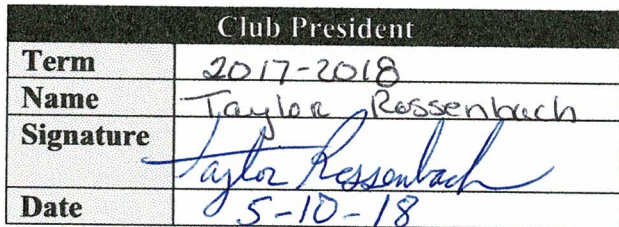 Club President
Term 2017-2018
Name Taylor Rossenbach
Signature Taylor Rossenbach
Date 5-10-18